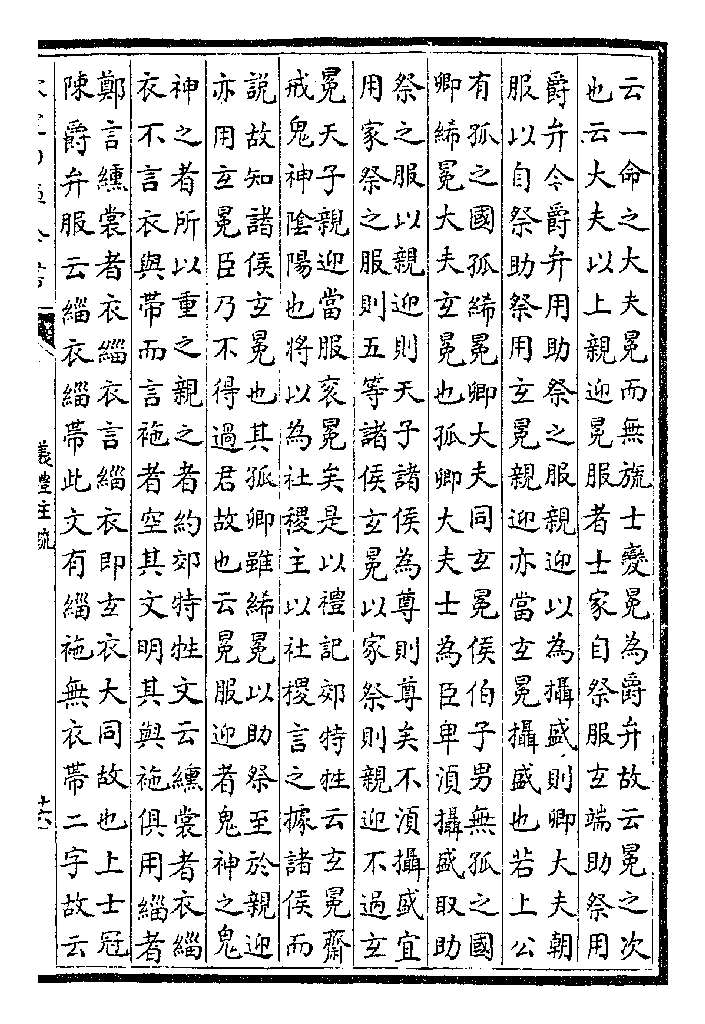 云一命之大夫冕而無旒士變冕為爵弁故云冕之次
也云大夫以上親迎冕服者士家自祭服玄端助祭用
爵弁今爵弁用助祭之服親迎以為攝盛則卿大夫朝
服以自祭助祭用玄冕親迎亦當玄冕攝盛也若上公
有孤之國孤絺冕卿大夫同玄冕侯伯子男無孤之國
卿絺冕大夫玄冕也孤卿大夫士為臣卑湏攝盛取助
祭之服以親迎則天子諸侯為尊則尊矣不湏攝盛宜
用家祭之服則五等諸侯玄冕以家祭則親迎不過玄
冕天子親迎當服衮冕矣是以禮記郊特牲云玄冕齋
戒鬼神陰陽也將以為社稷主以社稷言之據諸侯而
說故知諸侯玄冕也其孤卿雖絺冕以助祭至於親迎
亦用玄冕臣乃不得過君故也云冕服迎者鬼神之鬼
神之者所以重之親之者約郊特牲文云纁裳者衣緇
衣不言衣與帶而言袘者空其文明其與袘俱用緇者
鄭言纁裳者衣緇衣言緇衣即玄衣大同故也上士冠
陳爵弁服云緇衣緇帶此文有緇袘無衣帶二字故云
儀禮注疏
十六